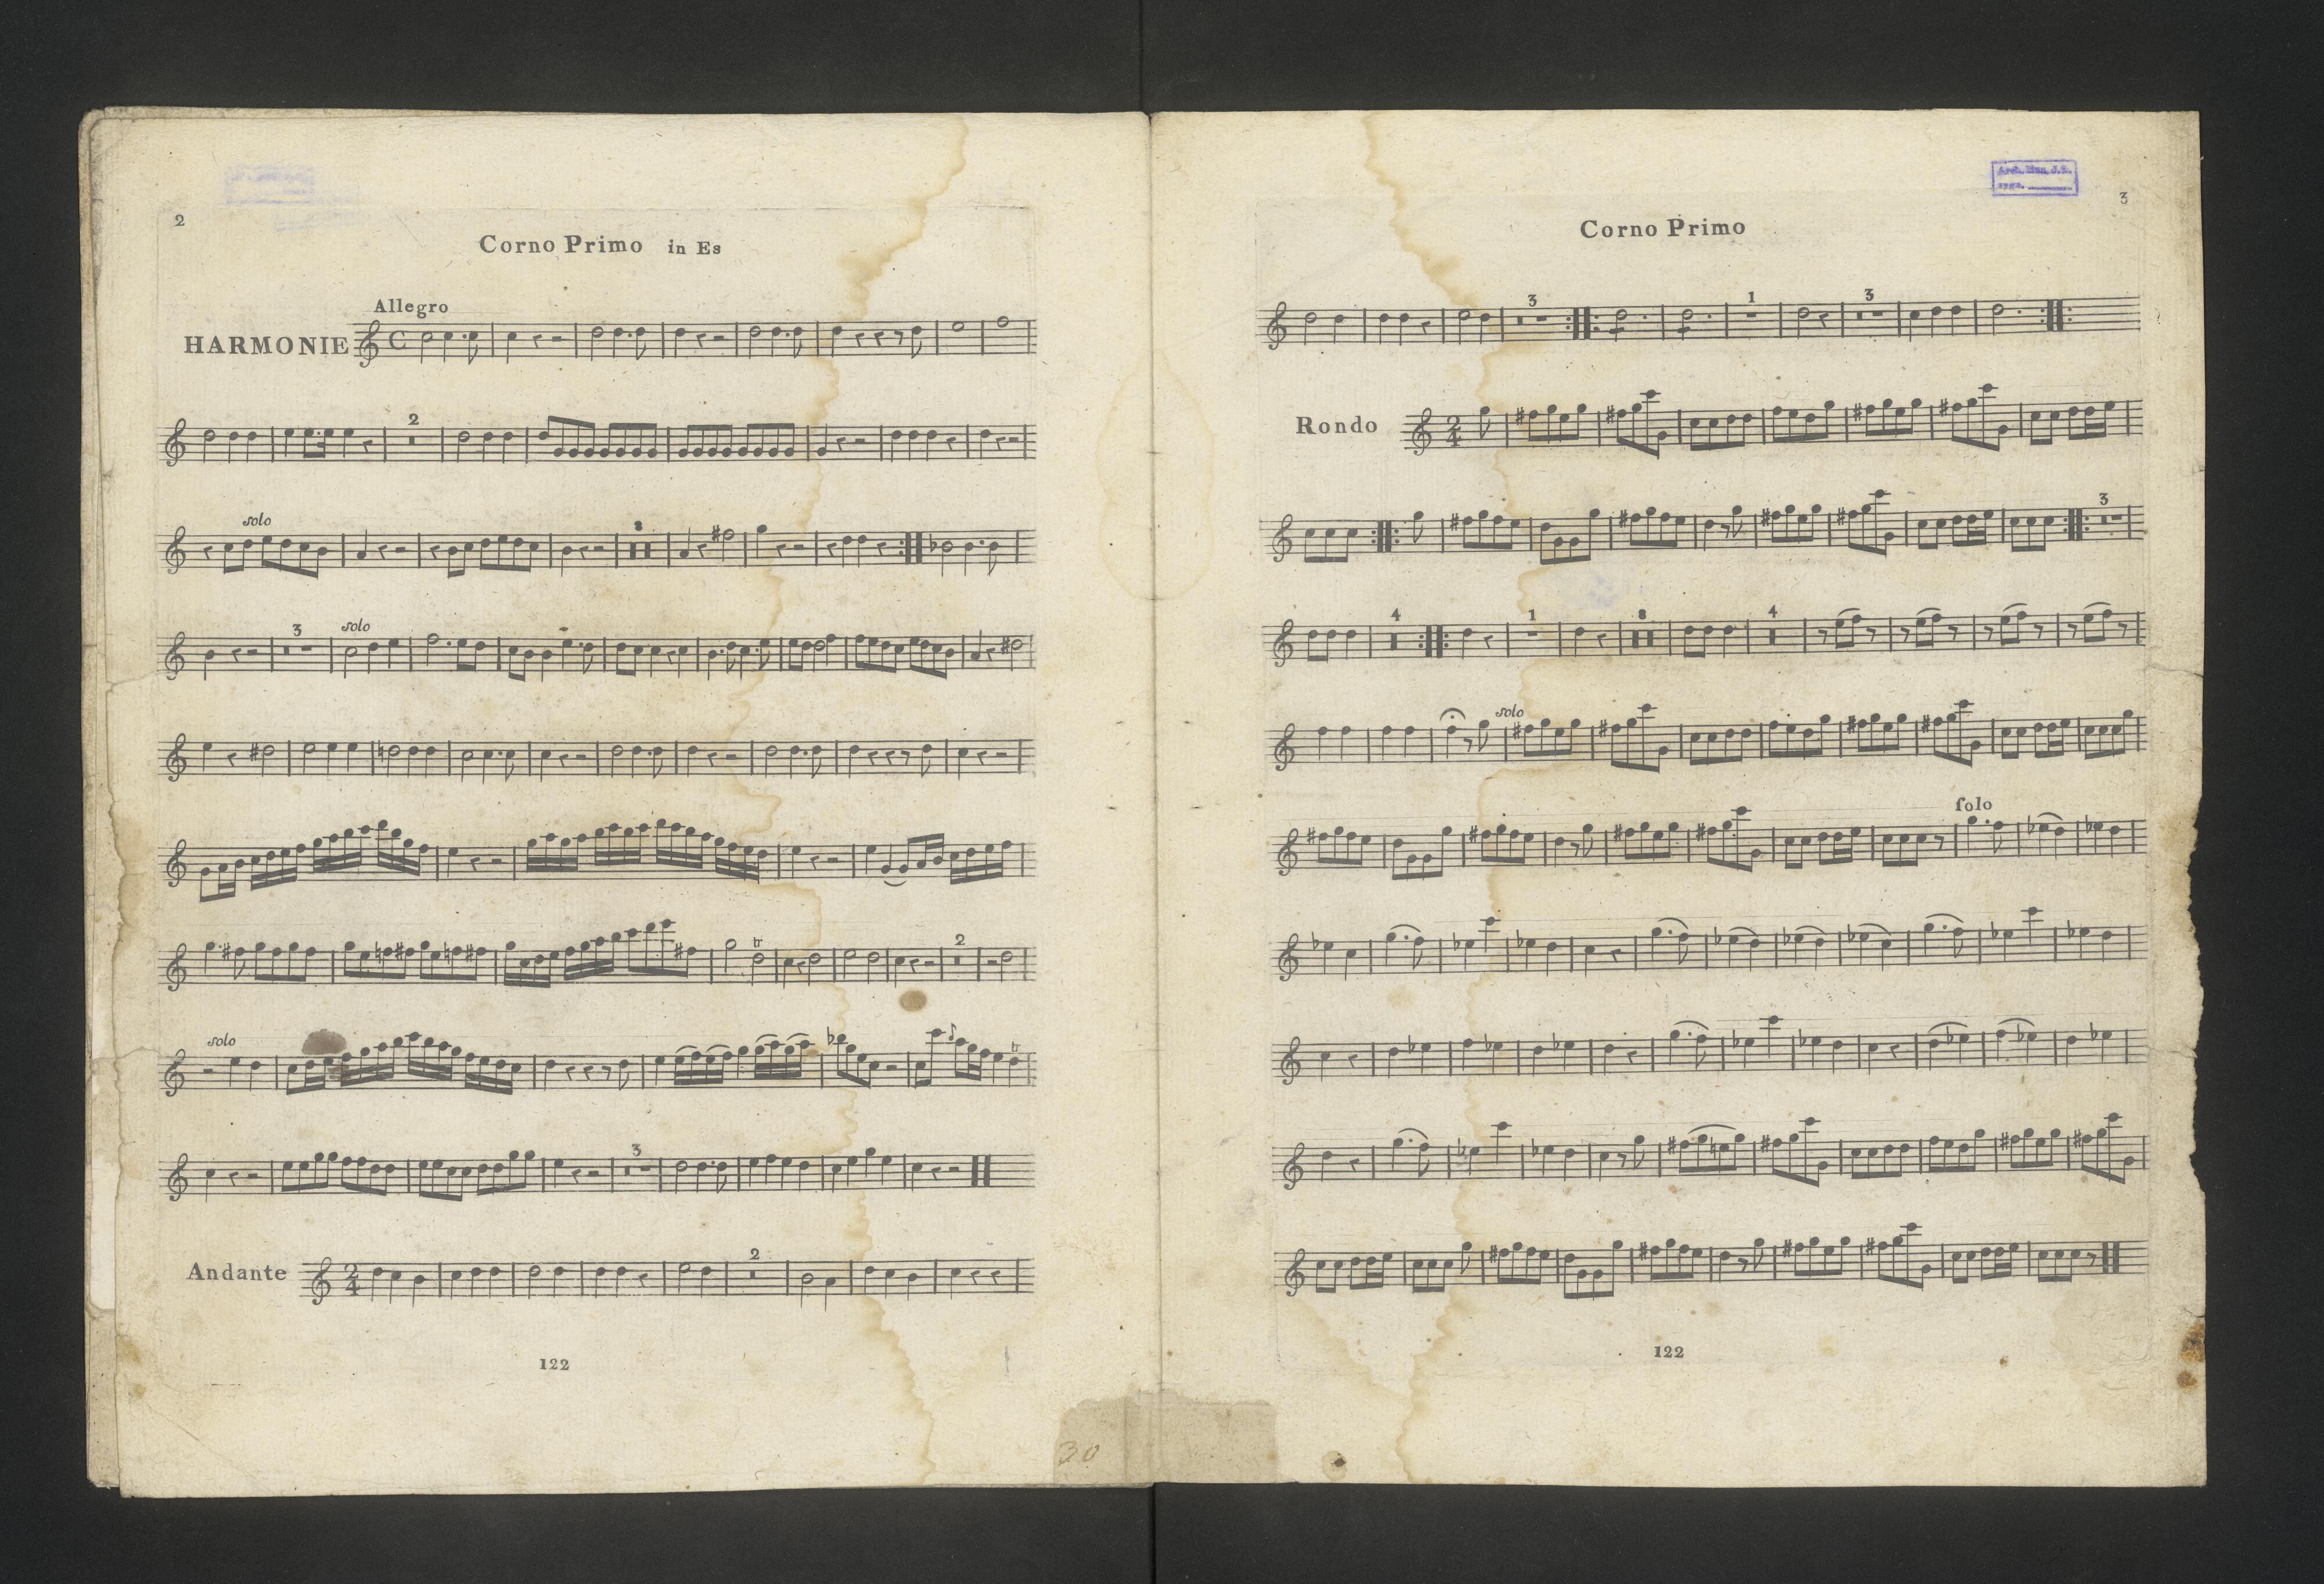 2
Corno Primo in Es
Allegro
HARMONIE
2
solo
8
3 solo
tr 2
solo
tr
3
Andante
2 4
2
122
30
3
Corno Primo
3 1 3
Rondo
2 4
3
4 1 8 4
solo
solo
122